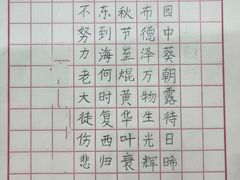 园中葵朝露待日晞
布德泽万物生光辉
秋节至焜黄华叶衰
东到海何时复西归
不努力老大徒伤悲